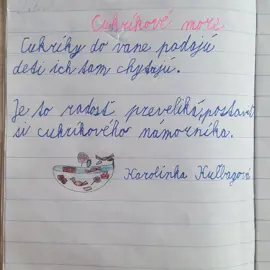 Cukríkové more
Cukríky do vane padajú
deti ich tam chytajú.
Je to radosť preveliká, postaviť
si cukríkového námorníka.
Karolínka Kulbagová